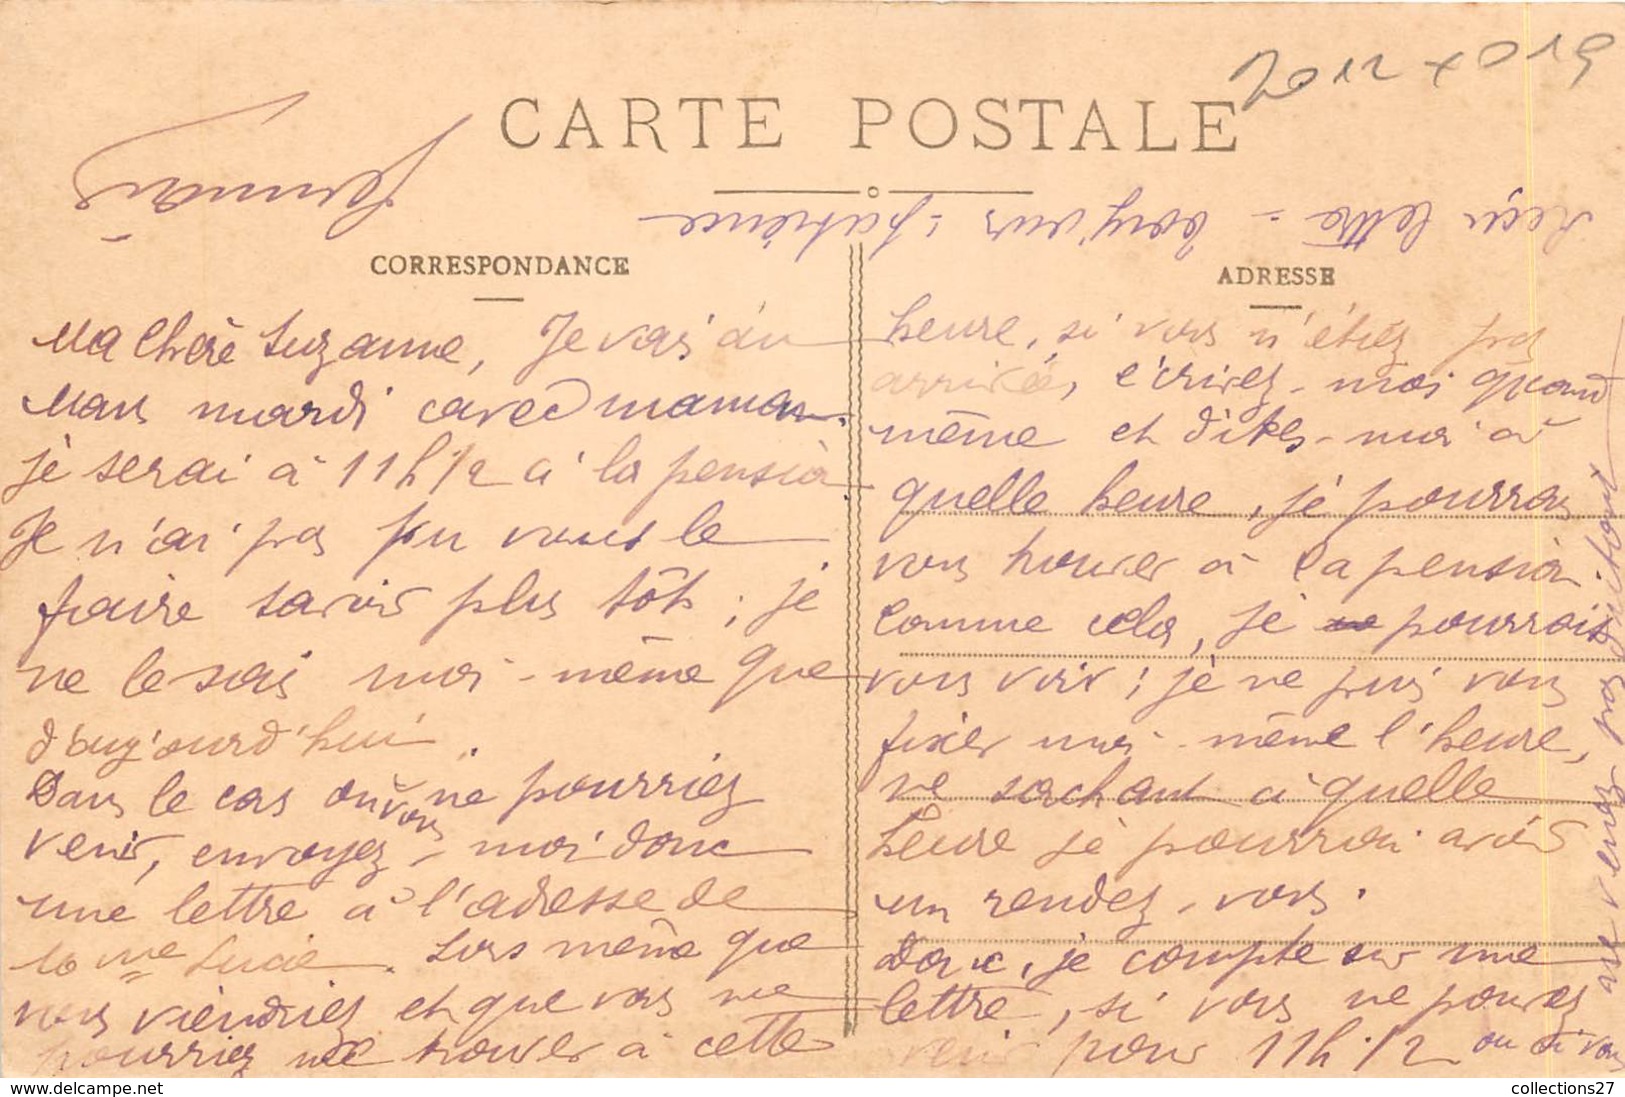 2012 x 019
CARTE POSTALE
Reçu lettre = bonjour = patience
Germaine
CORRESPONDANCE
Ma Chère Suzanne, Je vais au
Mans mardi avec maman.
je serai à 11h 1/2 à la pension.
Je n'ai pas pu vous le
faire savoir plus tôt ; je
ne le sais moi-même que
d'aujourd'hui.
Dans le cas où vous ne pourriez
venir, envoyez-moi donc
une lettre à l'adresse de
Lucie. Lors même que
vous viendriez et que vous ne
pourriez me trouver à cette
ADRESSE
heure, si vous n'étiez pas
arrivée, écrivez-moi quand
même et dites-moi à
quelle heure, je pourrai
vous trouver à la pension.
Comme cela, je pourrais
vous voir ; je ne puis vous
fixer moi-même l'heure,
ne sachant à quelle
heure je pourrai avoir
un rendez-vous.
Donc, je compte sur une
lettre, si vous ne pouvez
venir pour 11h 1/2 ou si vous
ne venez pas surtout
www.delcampe.net
collections27